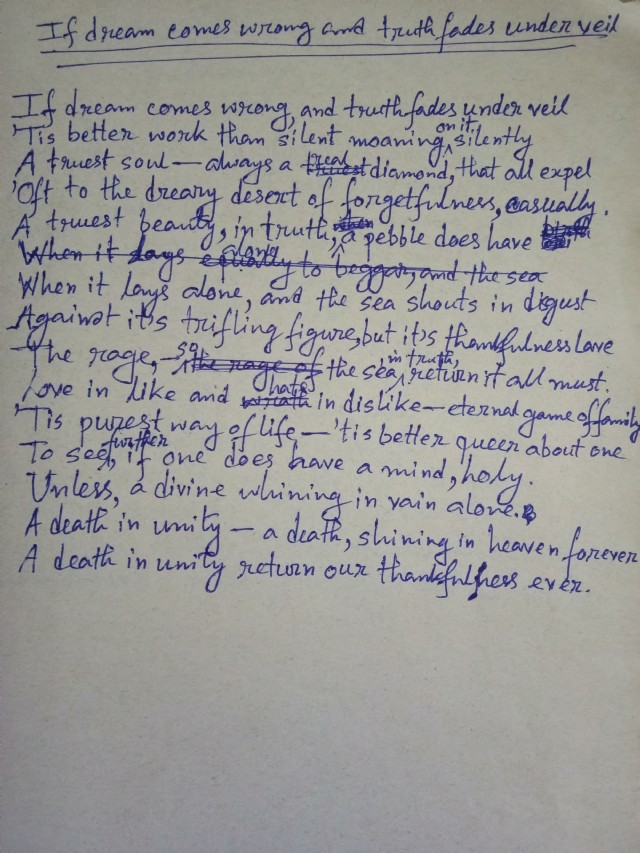 If dream comes wrong and truth fades under veil
If dream comes wrong, and truth fades under veil
'Tis better work than silent moaning on it, silently
A truest soul — always a real diamond, that all expel
'Oft to the dreary desert of forgetfulness, casually.
A truest beauty, in truth, a pebble does have
When it lays equally along to beggar, and the sea
When it lays alone, and the sea shouts in disgust
Against it's trifling figure, but it's thankfulness lave
The rage, — so the rage of the sea, in truth, return it all must.
Love in like and hate in dislike — eternal game of family
'Tis purest way of life — 'tis better queer about one
To see, further if one does have a mind, holy.
Unless, a divine whining in vain alone.
A death in unity — a death, shining in heaven forever
A death in unity return our thankfulness ever.